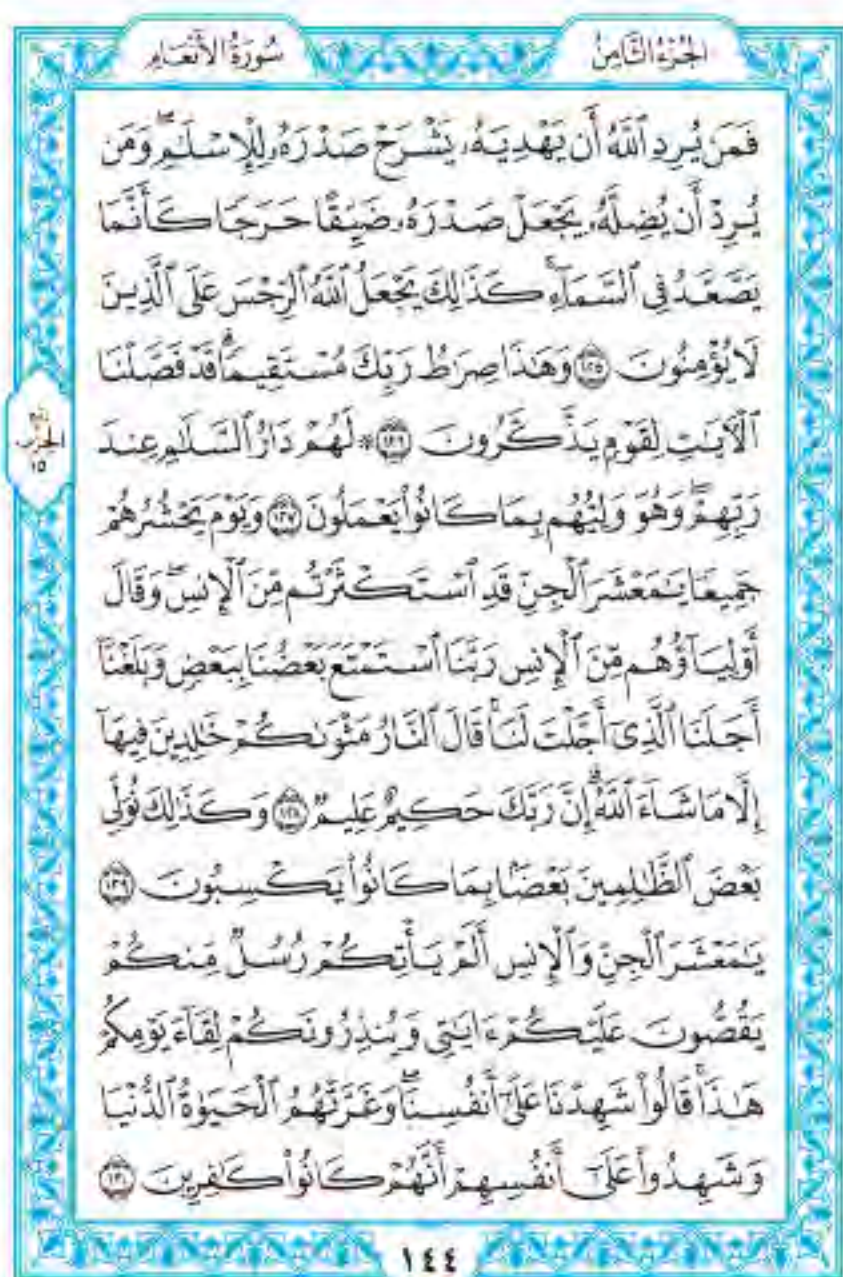 الجُزْءُ الثَّامِنُ
سُورَةُ الأَنْعَامِ
فَمَن يُرِدِ ٱللَّهُ أَن يَهْدِيَهُۥ يَشْرَحْ صَدْرَهُۥ لِلْإِسْلَٰمِۖ وَمَن
يُرِدْ أَن يُضِلَّهُۥ يَجْعَلْ صَدْرَهُۥ ضَيِّقًا حَرَجًا كَأَنَّمَا
يَصَّعَّدُ فِى ٱلسَّمَآءِۚ كَذَٰلِكَ يَجْعَلُ ٱللَّهُ ٱلرِّجْسَ عَلَى ٱلَّذِينَ
لَا يُؤْمِنُونَ ١٢٥ وَهَٰذَا صِرَٰطُ رَبِّكَ مُسْتَقِيمًاۗ قَدْ فَصَّلْنَا
ٱلْءَايَٰتِ لِقَوْمٍ يَذَّكَّرُونَ ١٢٦ ۞ لَهُمْ دَارُ ٱلسَّلَٰمِ عِندَ
رَبِّهِمْۖ وَهُوَ وَلِيُّهُم بِمَا كَانُوا۟ يَعْمَلُونَ ١٢٧ وَيَوْمَ يَحْشُرُهُمْ
جَمِيعًا يَٰمَعْشَرَ ٱلْجِنِّ قَدِ ٱسْتَكْثَرْتُم مِّنَ ٱلْإِنسِۖ وَقَالَ
أَوْلِيَآؤُهُم مِّنَ ٱلْإِنسِ رَبَّنَا ٱسْتَمْتَعَ بَعْضُنَا بِبَعْضٍ وَبَلَغْنَآ
أَجَلَنَا ٱلَّذِىٓ أَجَّلْتَ لَنَاۚ قَالَ ٱلنَّارُ مَثْوَىٰكُمْ خَٰلِدِينَ فِيهَآ
إِلَّا مَا شَآءَ ٱللَّهُۗ إِنَّ رَبَّكَ حَكِيمٌ عَلِيمٌ ١٢٨ وَكَذَٰلِكَ نُوَلِّى
بَعْضَ ٱلظَّٰلِمِينَ بَعْضًۢا بِمَا كَانُوا۟ يَكْسِبُونَ ١٢٩
يَٰمَعْشَرَ ٱلْجِنِّ وَٱلْإِنسِ أَلَمْ يَأْتِكُمْ رُسُلٌ مِّنكُمْ
يَقُصُّونَ عَلَيْكُمْ ءَايَٰتِى وَيُنذِرُونَكُمْ لِقَآءَ يَوْمِكُمْ
هَٰذَاۚ قَالُوا۟ شَهِدْنَا عَلَىٰٓ أَنفُسِنَاۖ وَغَرَّتْهُمُ ٱلْحَيَوٰةُ ٱلدُّنْيَا
وَشَهِدُوا۟ عَلَىٰٓ أَنفُسِهِمْ أَنَّهُمْ كَانُوا۟ كَٰفِرِينَ ١٣٠
ربع
الحزب
١٥
١٤٤